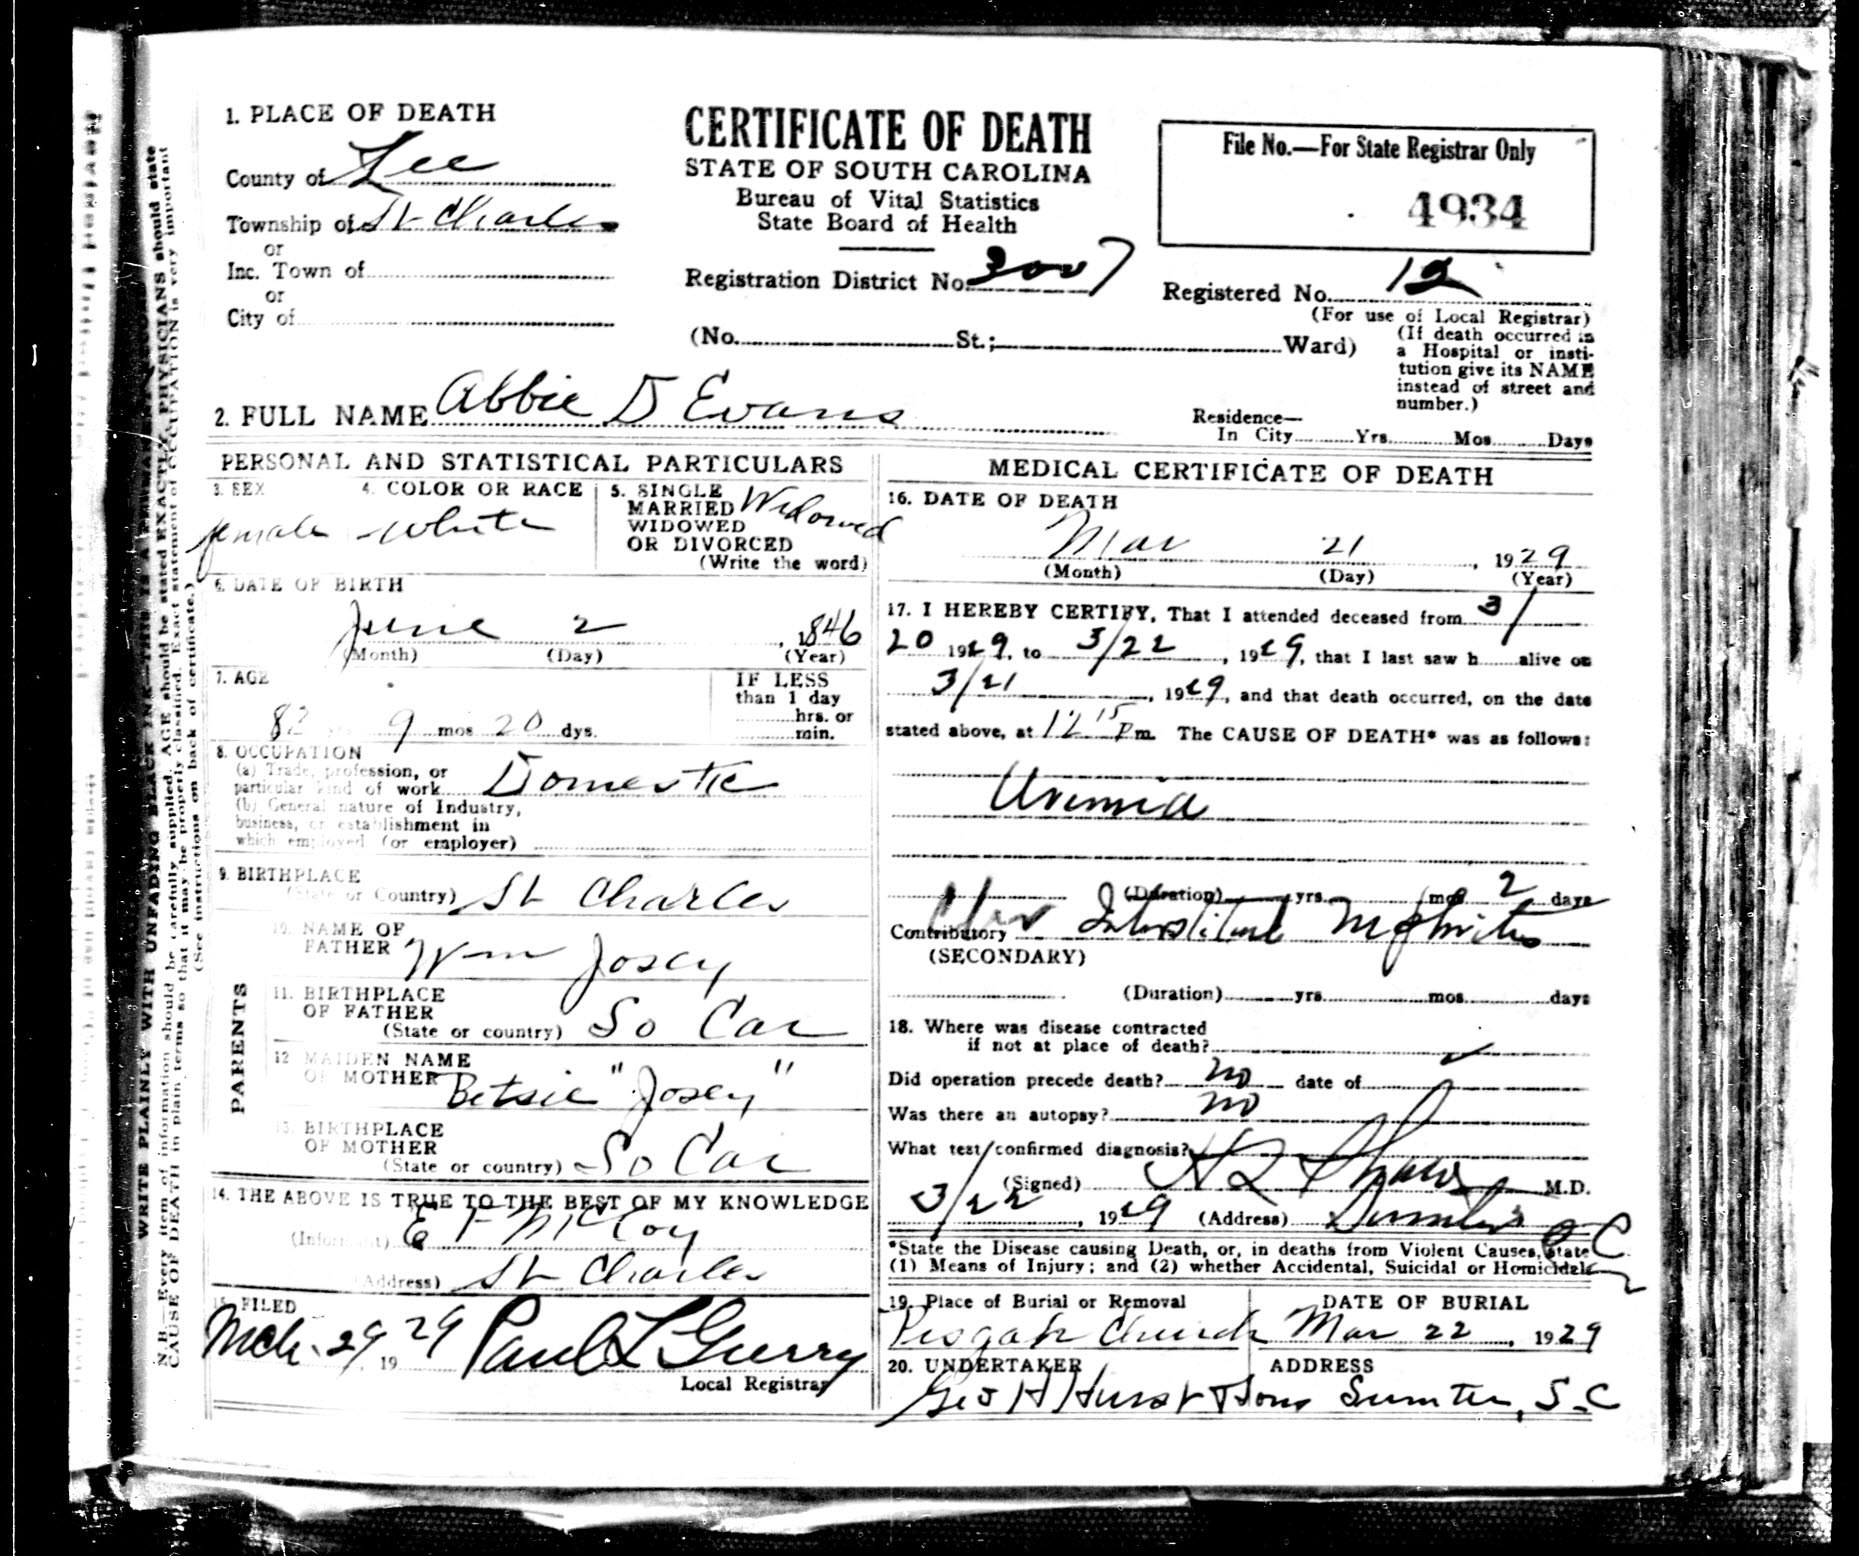 1. PLACE OF DEATH
County of Lee
Township of St Charles
or
Inc. Town of
or
City of
CERTIFICATE OF DEATH
STATE OF SOUTH CAROLINA
Bureau of Vital Statistics
State Board of Health
Registration District No. 3007
(No. St.; Ward)
File No.—For State Registrar Only
4934
Registered No. 12
(For use of Local Registrar)
(If death occurred in
a Hospital or insti-
tution give its NAME
instead of street and
number.)
2. FULL NAME Abbie D Evans
Residence—
In City Yrs. Mos. Days
PERSONAL AND STATISTICAL PARTICULARS
3. SEX
female
4. COLOR OR RACE
white
5. SINGLE
MARRIED
WIDOWED
OR DIVORCED
Widowed
(Write the word)
6. DATE OF BIRTH
June 2, 1846
(Month) (Day) (Year)
7. AGE
82 yrs 9 mos 20 dys.
IF LESS
than 1 day
hrs. or
min.
8. OCCUPATION
(a) Trade, profession, or
particular kind of work Domestic
(b) General nature of Industry,
business, or establishment in
which employed (or employer)
9. BIRTHPLACE
(State or Country) St Charles
PARENTS
10. NAME OF
FATHER Wm Josey
11. BIRTHPLACE
OF FATHER
(State or country) So Car
12 MAIDEN NAME
OF MOTHER Betsie "Josey"
13. BIRTHPLACE
OF MOTHER
(State or country) So Car
14. THE ABOVE IS TRUE TO THE BEST OF MY KNOWLEDGE
(Informant) E T McCoy
(Address) St Charles
15. FILED
Mch. 29, 1929 Paul L Gurry
Local Registrar
MEDICAL CERTIFICATE OF DEATH
16. DATE OF DEATH
Mar 21, 1929
(Month) (Day) (Year)
17. I HEREBY CERTIFY, That I attended deceased from 3/
20 1929, to 3/22, 1929, that I last saw h alive on
3/21, 1929, and that death occurred, on the date
stated above, at 12 15 P m. The CAUSE OF DEATH* was as follows:
Uremia
(Duration) yrs. mos 2 days
Contributory Chr Interstitial Nephritis
(SECONDARY)
(Duration) yrs. mos. days
18. Where was disease contracted
if not at place of death?
Did operation precede death? no date of
Was there an autopsy? no
What test confirmed diagnosis?
(Signed) Shaw M.D.
3/22, 1929 (Address) Sumter S C
*State the Disease causing Death, or, in deaths from Violent Causes, state
(1) Means of Injury; and (2) whether Accidental, Suicidal or Homicidal.
19. Place of Burial or Removal
Pisgah Church
DATE OF BURIAL
Mar 22, 1929
20. UNDERTAKER
Geo H Hurst & Sons
ADDRESS
Sumter, S.C
N. B.—Every item of information should be carefully supplied. AGE should be stated EXACTLY. PHYSICIANS should state
CAUSE OF DEATH in plain terms so that it may be properly classified. Exact statement of OCCUPATION is very important
(See instructions on back of certificate.)
WRITE PLAINLY WITH UNFADING BLACK INK—THIS IS A PERMANENT